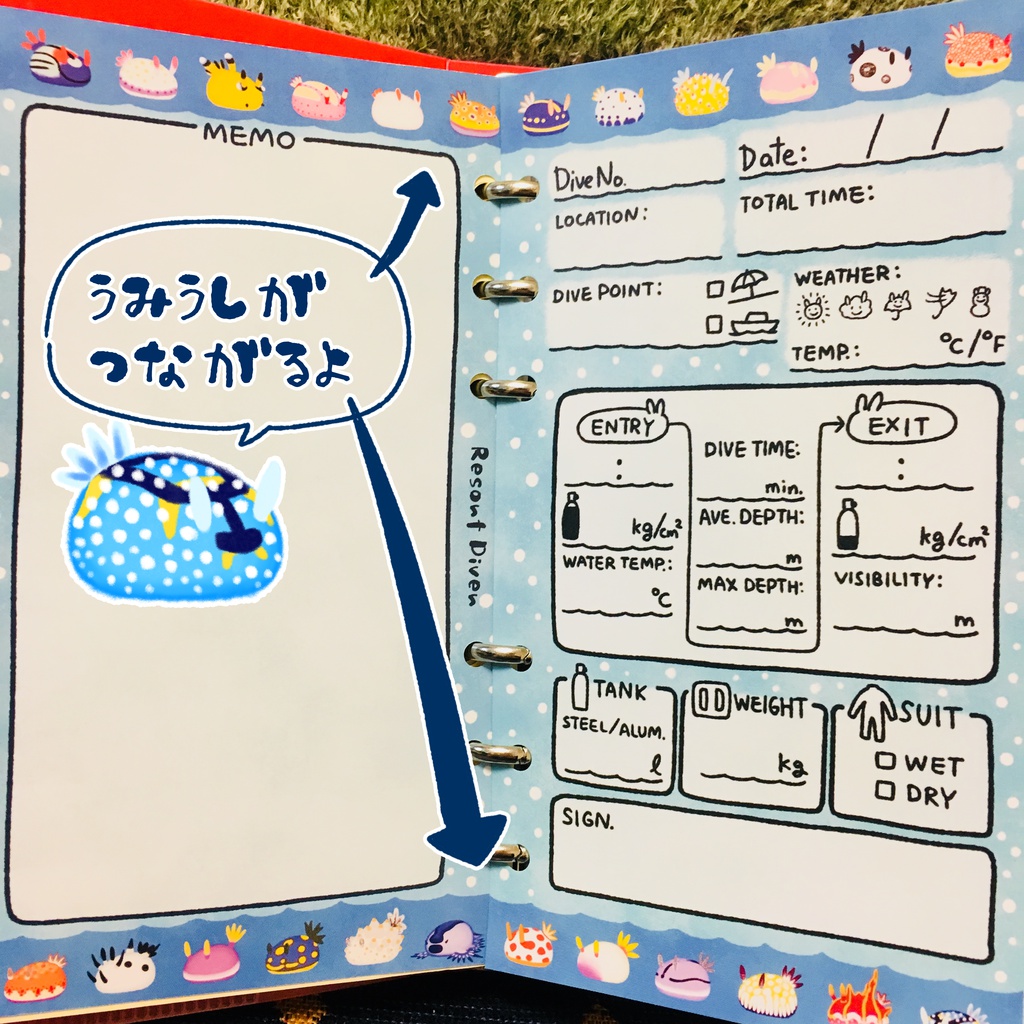 MEMO
うみうしが
つながるよ
Resort Diver
Dive No.
Date: / /
LOCATION:
TOTAL TIME:
DIVE POINT:
WEATHER:
TEMP.: °C/°F
ENTRY
:
kg/cm²
WATER TEMP.:
°C
DIVE TIME:
min.
AVE. DEPTH:
m
MAX DEPTH:
m
EXIT
:
kg/cm²
VISIBILITY:
m
TANK
STEEL/ALUM.
ℓ
WEIGHT
kg
SUIT
WET
DRY
SIGN.